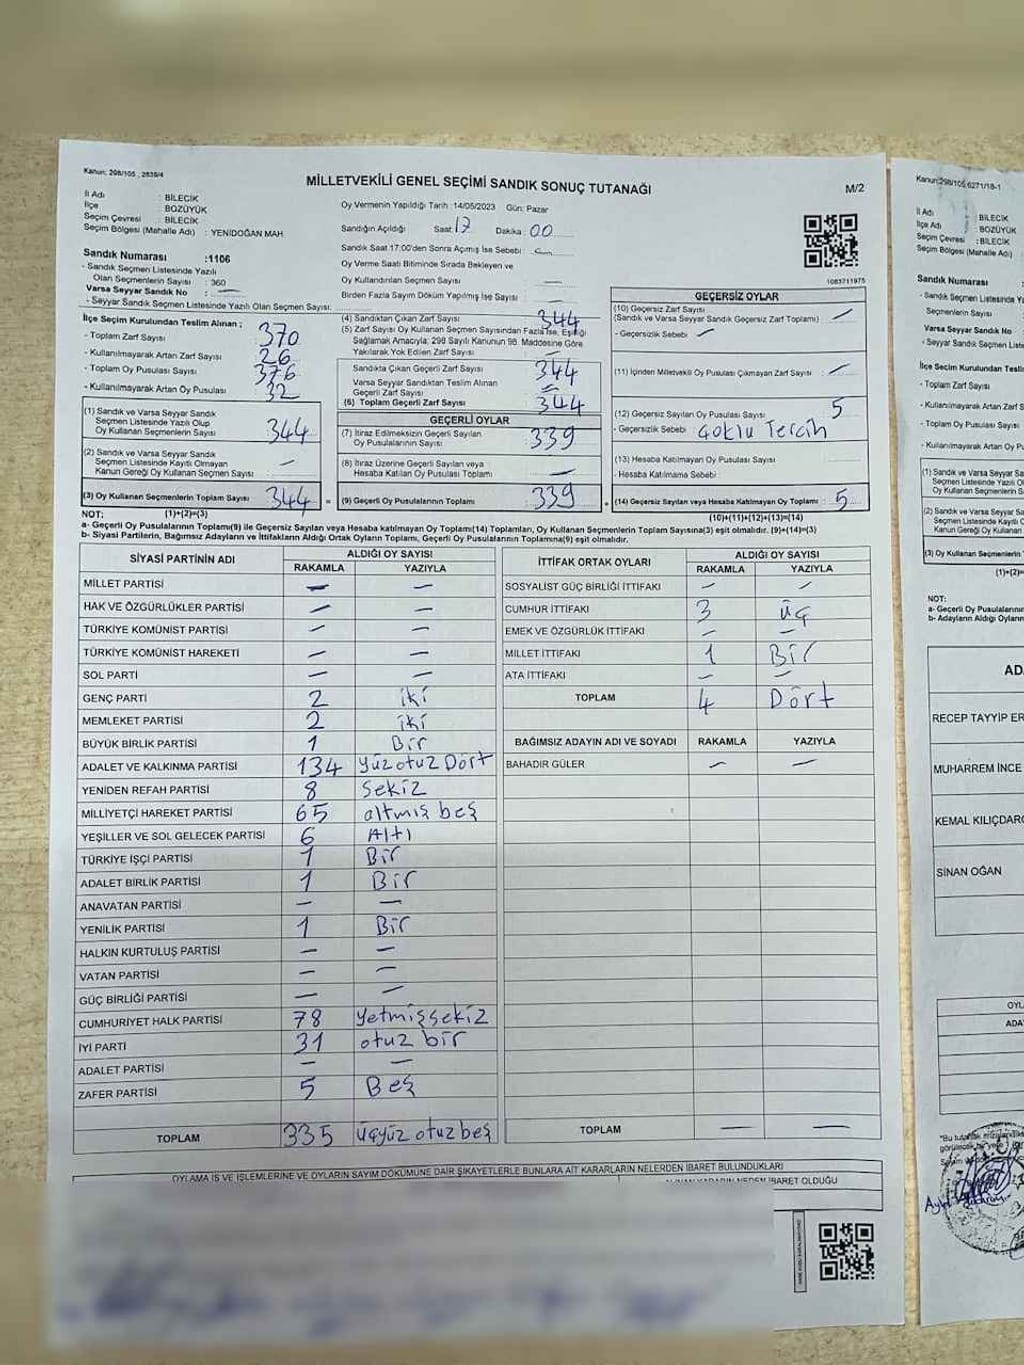 Kanun: 298/105 , 2839/4
MİLLETVEKİLİ GENEL SEÇİMİ SANDIK SONUÇ TUTANAĞI
M/2
İl Adı : BİLECİK
İlçe : BOZÜYÜK
Seçim Çevresi : BİLECİK
Seçim Bölgesi (Mahalle Adı) : YENİDOĞAN MAH.
Sandık Numarası :1106
- Sandık Seçmen Listesinde Yazılı
Olan Seçmenlerin Sayısı : 360
Varsa Seyyar Sandık No : —
- Seyyar Sandık Seçmen Listesinde Yazılı Olan Seçmen Sayısı:
Oy Vermenin Yapıldığı Tarih : 14/05/2023 Gün: Pazar
Sandığın Açıldığı Saat: 17 Dakika: 00
Sandık Saat 17:00'den Sonra Açmış İse Sebebi : —
Oy Verme Saati Bitiminde Sırada Bekleyen ve
Oy Kullandırılan Seçmen Sayısı : —
Birden Fazla Sayım Döküm Yapılmış İse Sayısı : —
1083711975
İlçe Seçim Kurulundan Teslim Alınan ;
- Toplam Zarf Sayısı : 370
- Kullanılmayarak Artan Zarf Sayısı : 26
- Toplam Oy Pusulası Sayısı : 376
- Kullanılmayarak Artan Oy Pusulası : 32
(1) Sandık ve Varsa Seyyar Sandık
Seçmen Listesinde Yazılı Olup
Oy Kullanan Seçmenlerin Sayısı : 344
(2) Sandık ve Varsa Seyyar Sandık
Seçmen Listesinde Kayıtlı Olmayan
Kanun Gereği Oy Kullanan Seçmen Sayısı : —
(3) Oy Kullanan Seçmenlerin Toplam Sayısı : 344 =
(1)+(2)=(3)
(4) Sandıktan Çıkan Zarf Sayısı : 344
(5) Zarf Sayısı Oy Kullanan Seçmen Sayısından Fazla İse, Eşitliği
Sağlamak Amacıyla; 298 Sayılı Kanunun 98. Maddesine Göre
Yakılarak Yok Edilen Zarf Sayısı : —
Sandıkta Çıkan Geçerli Zarf Sayısı : 344
Varsa Seyyar Sandıktan Teslim Alınan
Geçerli Zarf Sayısı :
(6) Toplam Geçerli Zarf Sayısı : 344
GEÇERLİ OYLAR
(7) İtiraz Edilmeksizin Geçerli Sayılan
Oy Pusulalarının Sayısı : 339
(8) İtiraz Üzerine Geçerli Sayılan veya
Hesaba Katılan Oy Pusulası Toplamı : —
(9) Geçerli Oy Pusulalarının Toplamı : 339 +
GEÇERSİZ OYLAR
(10) Geçersiz Zarf Sayısı
(Sandık ve Varsa Seyyar Sandık Geçersiz Zarf Toplamı) : —
- Geçersizlik Sebebi : —
(11) İçinden Milletvekili Oy Pusulası Çıkmayan Zarf Sayısı : —
(12) Geçersiz Sayılan Oy Pusulası Sayısı : 5
- Geçersizlik Sebebi : Çoklu Tercih
(13) Hesaba Katılmayan Oy Pusulası Sayısı :
- Hesaba Katılmama Sebebi :
(14) Geçersiz Sayılan veya Hesaba Katılmayan Oy Toplamı : 5
(10)+(11)+(12)+(13)=(14)
NOT:
a- Geçerli Oy Pusulasının Toplamı(9) ile Geçersiz Sayılan veya Hesaba katılmayan Oy Toplamı(14) Toplamları, Oy Kullanan Seçmenlerin Toplam Sayısına(3) eşit olmalıdır. (9)+(14)=(3)
b- Siyasi Partilerin, Bağımsız Adayların ve İttifakların Aldığı Ortak Oyların Toplamı, Geçerli Oy Pusulalarının Toplamına(9) eşit olmalıdır.
SİYASİ PARTİNİN ADI ALDIĞI OY SAYISI
RAKAMLA YAZIYLA
MİLLET PARTİSİ — —
HAK VE ÖZGÜRLÜKLER PARTİSİ — —
TÜRKİYE KOMÜNİST PARTİSİ — —
TÜRKİYE KOMÜNİST HAREKETİ — —
SOL PARTİ — —
GENÇ PARTİ 2 iki
MEMLEKET PARTİSİ 2 iki
BÜYÜK BİRLİK PARTİSİ 1 Bir
ADALET VE KALKINMA PARTİSİ 134 yüzotuz Dört
YENİDEN REFAH PARTİSİ 8 Sekiz
MİLLİYETÇİ HAREKET PARTİSİ 65 altmış beş
YEŞİLLER VE SOL GELECEK PARTİSİ 6 Altı
TÜRKİYE İŞÇİ PARTİSİ 1 Bir
ADALET BİRLİK PARTİSİ 1 Bir
ANAVATAN PARTİSİ — —
YENİLİK PARTİSİ 1 Bir
HALKIN KURTULUŞ PARTİSİ — —
VATAN PARTİSİ — —
GÜÇ BİRLİĞİ PARTİSİ — —
CUMHURİYET HALK PARTİSİ 78 Yetmişsekiz
İYİ PARTİ 31 otuz bir
ADALET PARTİSİ — —
ZAFER PARTİSİ 5 Beş
TOPLAM 335 üçyüz otuz beş
İTTİFAK ORTAK OYLARI ALDIĞI OY SAYISI
RAKAMLA YAZIYLA
SOSYALİST GÜÇ BİRLİĞİ İTTİFAKI — —
CUMHUR İTTİFAKI 3 üç
EMEK VE ÖZGÜRLÜK İTTİFAKI — —
MİLLET İTTİFAKI 1 Bir
ATA İTTİFAKI — —
TOPLAM 4 Dört
BAĞIMSIZ ADAYIN ADI VE SOYADI RAKAMLA YAZIYLA
BAHADIR GÜLER — —
TOPLAM — —
OYLAMA İŞ VE İŞLEMLERİNE VE OYLARIN SAYIM DÖKÜMÜNE DAİR ŞİKAYETLERLE BUNLARA AİT KARARLARIN NELERDEN İBARET BULUNDUKLARI
İBARET OLDUĞU
Kanun:298/105,6271/18-1
İl Adı : BİLECİK
İlçe Adı : BOZÜYÜK
Seçim Çevresi : BİLECİK
Seçim Bölgesi (Mahalle Adı)
Sandık Numarası
- Sandık Seçmen Listesinde
Seçmenlerin Sayısı
Varsa Seyyar Sandık No
- Seyyar Sandık Seçmen
İlçe Seçim Kurulundan
- Toplam Zarf Sayısı
- Kullanılmayarak Artan
- Toplam Oy Pusulası
- Kullanılmayarak Artan
(1) Sandık ve Varsa
Seçmen Listesinde
Oy Kullanan Seçmenlerin
(2) Sandık ve Varsa
Seçmen Listesinde
Kanun Gereği Oy
(3) Oy Kullanan Seçmenlerin
(1)+(2)=
NOT:
a- Geçerli Oy
b- Adayların Aldığı
RECEP TAYYİP
MUHARREM İNCE
KEMAL
SİNAN OĞAN